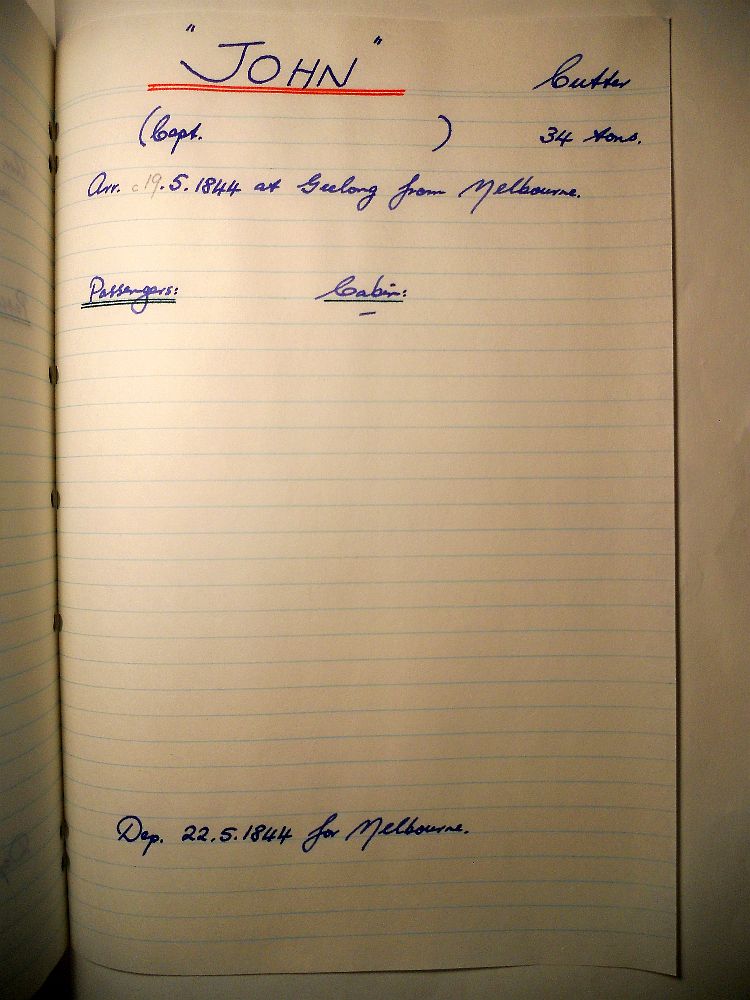 "JOHN" Cutter
(Capt. ) 34 tons.
Arr. c19.5.1844 at Geelong from Melbourne.
Passengers: Cabin:
—
Dep. 22.5.1844 for Melbourne.